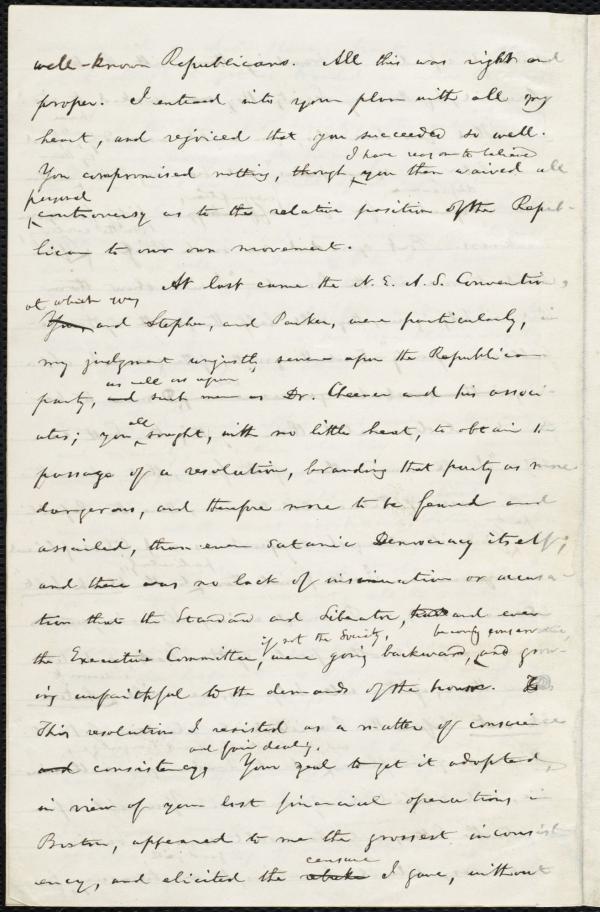 well-known Republicans. All this was right and
proper. I entered into your plan with all my
heart, and rejoiced that you succeeded so well.
I have reason to believe
You compromised nothing, though you then waived all
personal
controversy as to the relative position of the Repub-
lican to our own movement.
At last came the N. E. A. S. Convention,
at which you
You and Stephen, and Parker, were particularly, in
my judgment unjustly severe upon the Republican
as well as upon
party, and such men as Dr. Cheever and his associ-
all
ates; you sought, with no little heat, to obtain the
passage of a resolution, branding that party as more
dangerous, and therefore more to be feared and
assailed, than even Satanic Democracy itself;
and there was no lack of insinuation or accusa-
tion that the Standard and Liberator, and even
if not the Society, becoming conservative,
the Executive Committee, were going backward, and grow-
ing unfaithful to the demands of the hour.
This resolution I resisted as a matter of conscience
and fair dealing.
and consistency, Your zeal to get it adopted,
in view of your last financial operations in
Boston, appeared to me the grossest inconsist-
censure
ency, and elicited the rebuke I gave, without